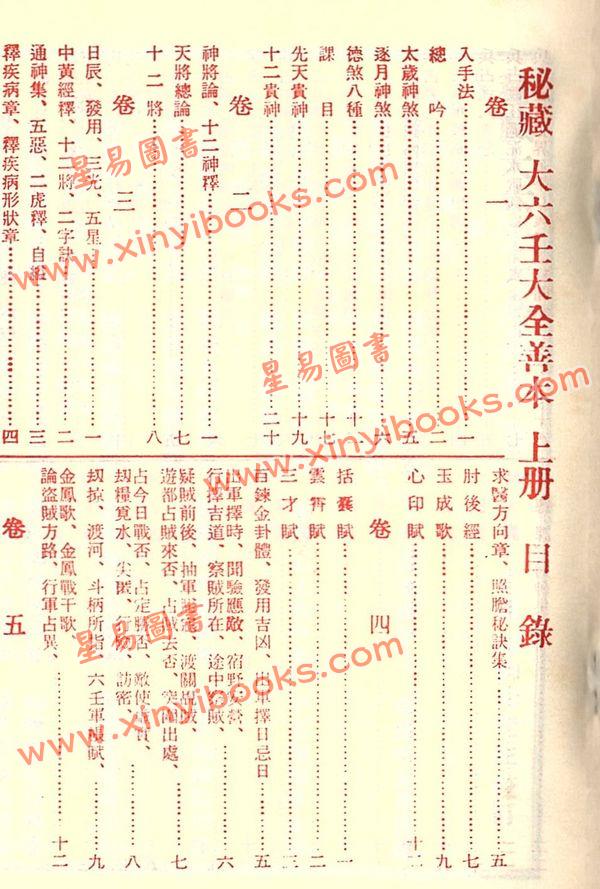 秘藏 大六壬大全善本 上册 目錄
卷一
入手法……一
總吟……二
太歲神煞……五
逐月神煞……六
德煞八種……十一
課目……十七
先天貴神……十九
十二貴神……二十
卷二
神將論、十二神釋……一
天將總論……七
十二將……八
卷三
日辰、發用、三光、五星……一
中黃經釋、十二將、二字訣……二
通神集、五惡、二虎釋、自……三
釋疾病章、釋疾病形狀章……四
求醫方向章、照膽秘訣集……五
肘後經……七
玉成歌……九
心印賦……十二
卷四
括囊賦……一
雲霄賦……二
三才賦……三
百鍊金卦體、發用吉凶、出軍擇日忌日……五
出軍擇時、聞驗應敵、宿野安營、
行擇吉道、察賊所在、途中賊、……六
疑賊前後、抽軍、渡關、
遊都占賊來否、占賊去否、突圍出處、……七
占今日戰否、占定勝否、敵使、
刼糧覓水、尖、訪密、……八
刼掠、渡河、斗柄所指、六壬軍帳賦、……九
金鳳歌、金鳳戰干歌
論盜賊方路、行軍占異、……十二
卷五
星易圖書
www.xinyibooks.com
星易圖書
www.xinyibooks.com
星易圖書
www.xinyibooks.com